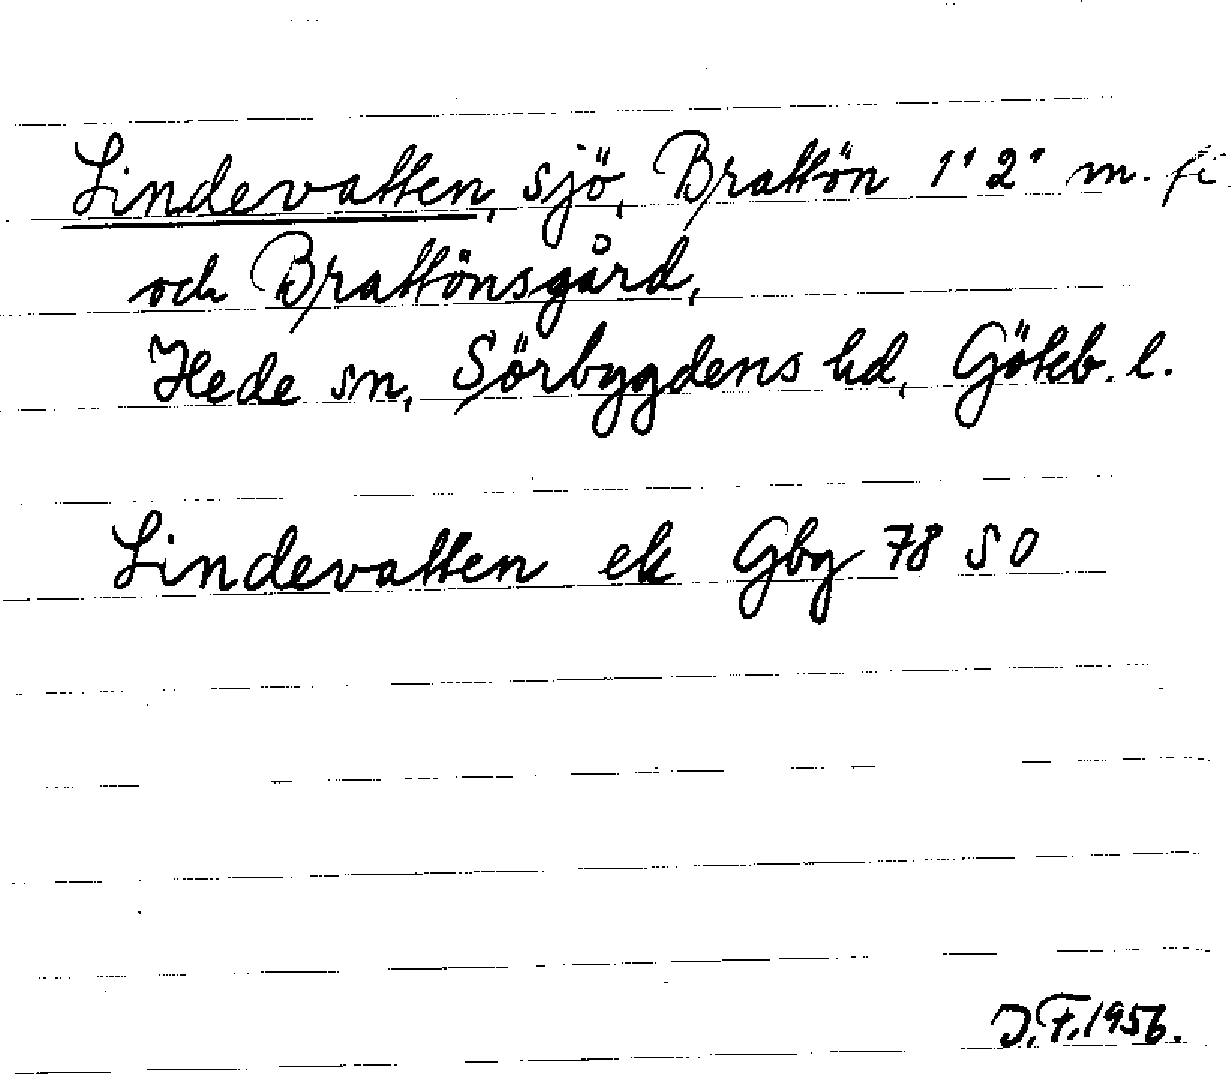 Lindevatten, sjö, Brattön 1" 2" m. fl
och Brattönsgård,
Hede sn, Sörbygdens hd, Göteb. l.
Lindevatten ek Gbg 78 SO
J.F. 1956.